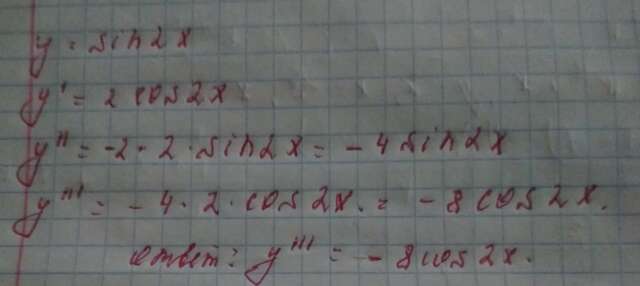 y = sin2x
y' = 2 cos2x
y'' = -2 · 2 · sin2x = - 4 sin2x
y''' = - 4 · 2 · cos2x. = - 8 cos2x.
ответ: y''' = - 8 cos2x.